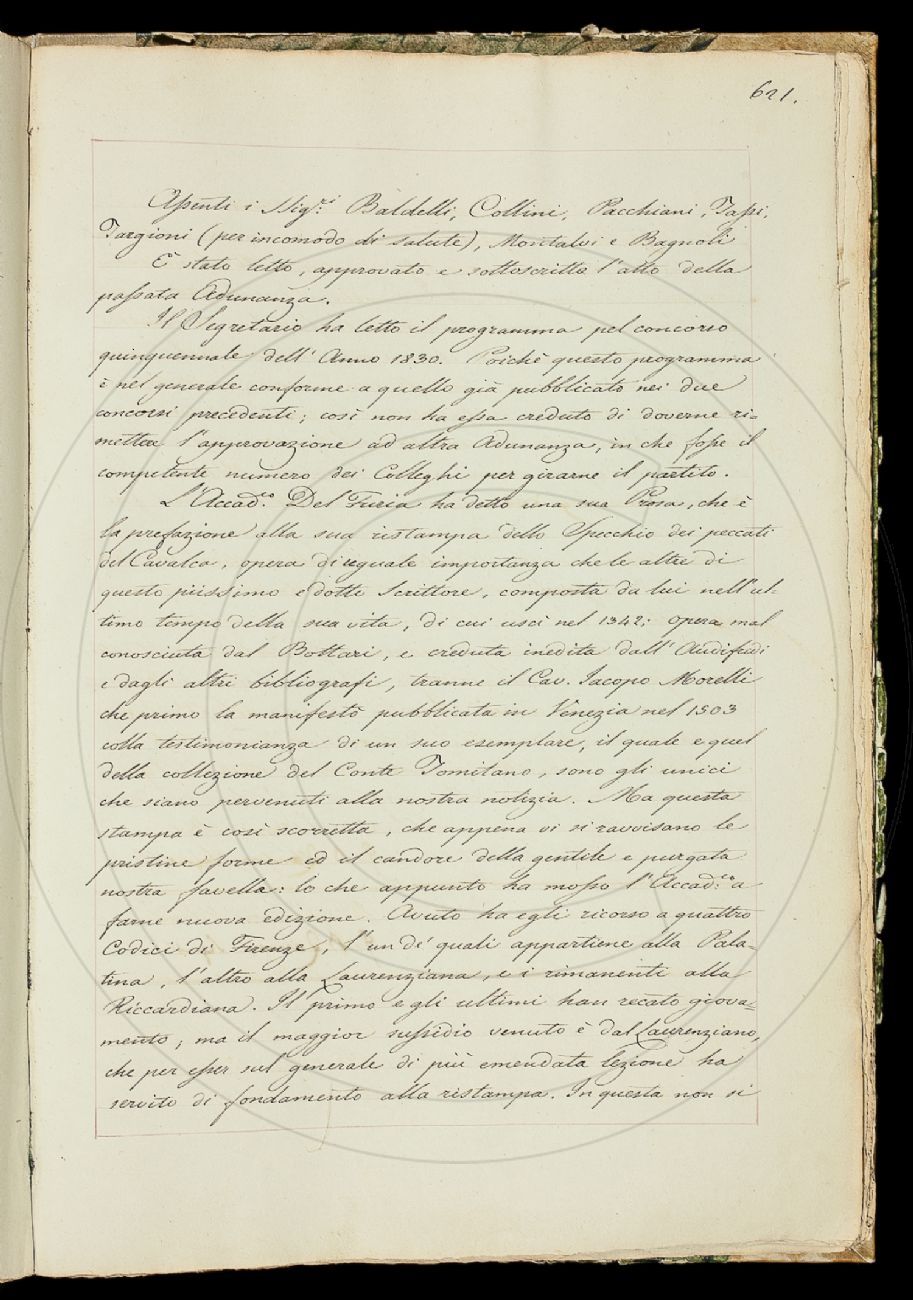 621.
Assenti i Sig.ri Baldelli, Collini, Pacchiani, Tassi,
Targioni (per incomodo di salute), Montalvi e Bagnoli
È stato letto, approvato e sottoscritto l'atto della
passata Adunanza.
Il Segretario ha letto il programma pel concorso
quinquennale dell'Anno 1830. Poichè questo programma
è nel generale conforme a quello già pubblicato nei due
concorsi precedenti; così non ha essa creduto di doverne ri=
mettere l'approvazione ad altra Adunanza, in che fosse il
competente numero dei Colleghi per girarne il partito.
L'Accad.co Del Furia ha detto una sua Prosa, che è
la prefazione alla sua ristampa dello Specchio dei peccati
del Cavalca, opera di uguale importanza che le altre di
questo piissimo e dotto Scrittore, composta da lui nell'ul-
timo tempo della sua vita, di cui uscì nel 1342; opera mal
conosciuta dal Bottari, e creduta inedita dall'Audifredi
e dagli altri bibliografi, tranne il Cav. Iacopo Morelli
che primo la manifestò pubblicata in Venezia nel 1503
colla testimonianza di un suo esemplare, il quale e quel
della collezione del Conte Tomitano, sono gli unici
che siano pervenuti alla nostra notizia. Ma questa
stampa è così scorretta, che appena vi si ravvisano le
pristine forme ed il candore della gentile e purgata
nostra favella: lo che appunto ha mosso l'Accad.co a
farne nuova edizione. Avuto ha egli ricorso a quattro
Codici di Firenze, l'un de' quali appartiene alla Pala-
tina, l'altro alla Laurenziana, e i rimanenti alla
Riccardiana. Il primo e gli ultimi han recato giova=
mento; ma il maggior sussidio venuto è dal Laurenziano,
che per esser sul generale di più emendata lezione ha
servito di fondamento alla ristampa. In questa non si